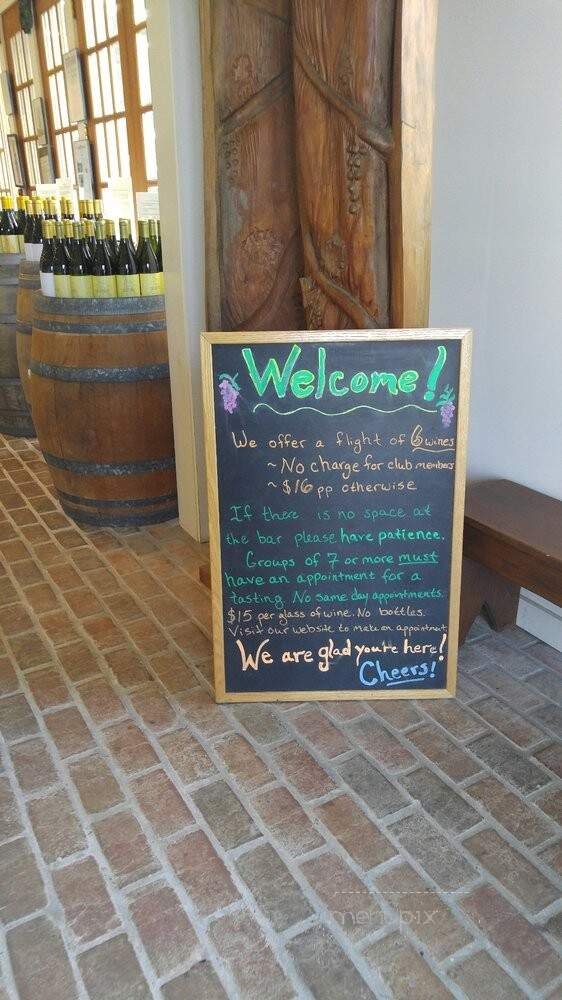 Welcome!
We offer a flight of 6 wines
~ No charge for club members
~ $16 pp otherwise
If there is no space at
the bar please have patience.
Groups of 7 or more must
have an appointment for a
tasting. No same day appointments.
$15 per glass of wine. No bottles.
Visit our website to make an appointment
We are glad you're here!
Cheers!
menupix